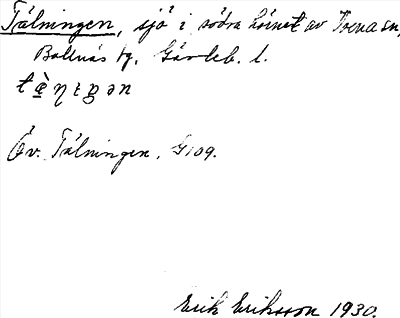 Tälningen, sjö i södra hörnet av Voxna sn,
Bollnäs tg. Gävleb. l.
Öv. Tälningen. G 109.
Erik Eriksson 1930.